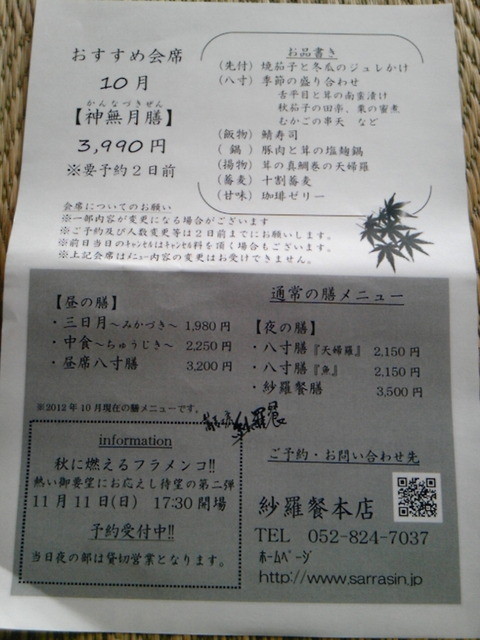 おすすめ会席
10月
かんなづきぜん
【神無月膳】
3,990円
※要予約2日前
お品書き
(先付) 焼茄子と冬瓜のジュレかけ
(八寸) 季節の盛り合わせ
舌平目と茸の南蛮漬け
秋茄子の田楽、栗の蜜煮
むかごの串天 など
(飯物) 鯖寿司
(鍋) 豚肉と茸の塩麹鍋
(揚物) 茸の真鯛巻の天婦羅
(蕎麦) 十割蕎麦
(甘味) 珈琲ゼリー
会席についてのお願い
※一部内容が変更になる場合がございます
※ご予約及び人数変更等は2日前までにお願いします。
※前日当日のｷｬﾝｾﾙはｷｬﾝｾﾙ料を頂く場合もございます。
※上記会席はﾒﾆｭｰ内容の変更はお受けできません。
通常の膳メニュー
【昼の膳】
・三日月～みかづき～ 1,980円
・中食～ちゅうじき～ 2,250円
・昼席八寸膳 3,200円
【夜の膳】
・八寸膳『天婦羅』 2,150円
・八寸膳『魚』 2,150円
・紗羅餐膳 3,500円
※2012年10月現在の膳メニューです。
紗羅餐
information
秋に燃えるフラメンコ!!
熱い御要望にお応えし待望の第二弾
11月11日(日) 17:30開場
予約受付中!!
当日夜の部は貸切営業となります。
ご予約・お問い合わせ先
紗羅餐本店
TEL 052-824-7037
ﾎｰﾑﾍﾟｰｼﾞ
http://www.sarrasin.jp